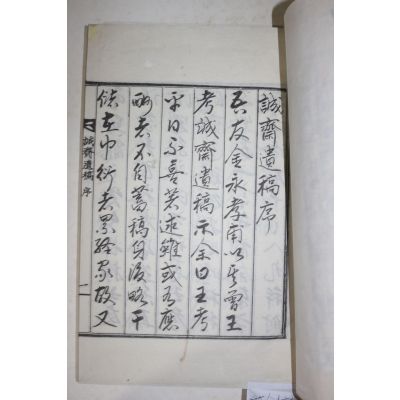 誠齋遺稿序
吾友金永孝甫以其曾王
考誠齋遺稿示余曰王考
平日不喜著述雖或有應
酬者不自蓄稿身後略干
儲在巾衍者累經家故又
誠齋遺稿 序 一